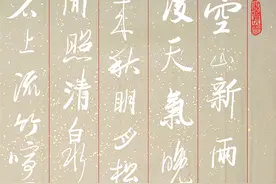 空山新雨
後天氣晚
来秋明月松
間照清泉
石上流竹喧